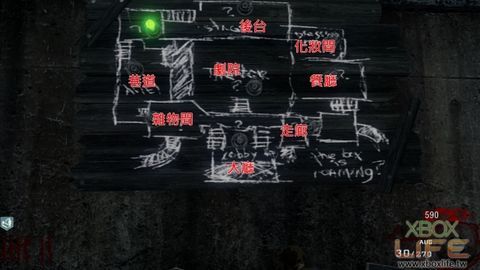 後台
化妝間
巷道
劇院
餐廳
雜物間
走廊
大廳
lobby
the box
is
running?
590
AUG
30/270
XBOX
LIFE
www.xboxlife.tw